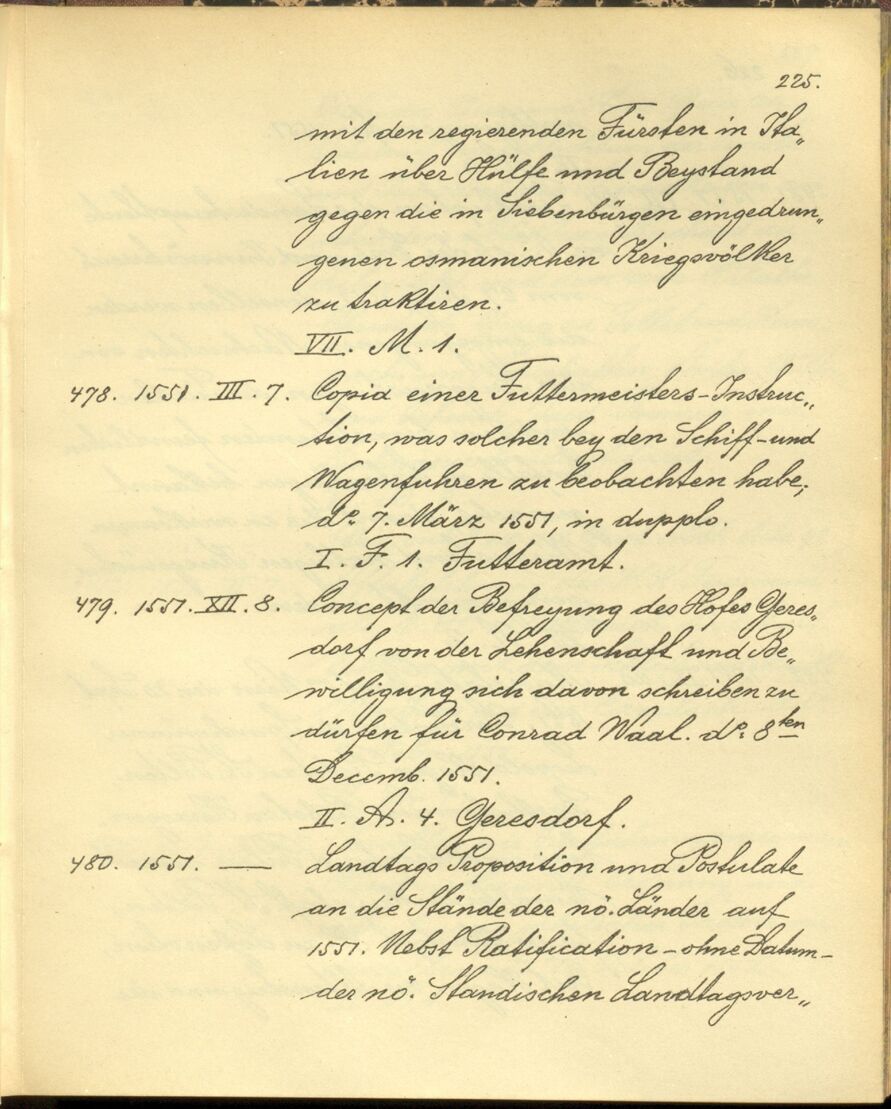 225.
mit den regierenden Fürsten in Ita„
lien über Hülfe und Beystand
gegen die in Siebenbürgen eingedrun„
genen osmanischen Kriegsvölker
zu traktiren.
VII. M. 1.
478. 1551. III. 7. Copia einer Futtermeisters-Instruc„
tion, was solcher bey den Schiff- und
Wagenfuhren zu beobachten habe;
do. 7. März 1551, in dupplo.
I. F. 1. Futteramt.
479. 1551. XII. 8. Concept der Befreyung des Hofes Geres„
dorf von der Lehenschaft und Be„
willigung sich davon schreiben zu
dürfen für Conrad Waal. do. 8ten
Decemb. 1551.
II. A. 4. Geresdorf.
480. 1551. — Landtags Proposition und Postulate
an die Stände der nö. Länder auf
1551. Nebst Ratification – ohne Datum –
der nö. Standischen Landtagsver„